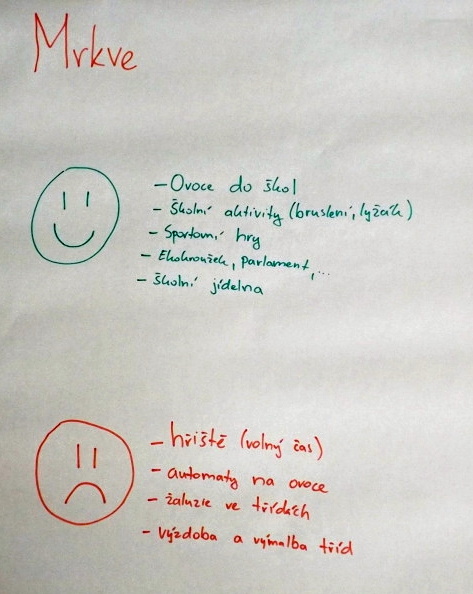 Mrkve
- Ovoce do škol
- Školní aktivity (bruslení, lyžák)
- Sportovní hry
- Ekokroužek, parlament,...
- školní jídelna
- hřiště (volný čas)
- automaty na ovoce
- žaluzie ve třídách
- výzdoba a výmalba tříd